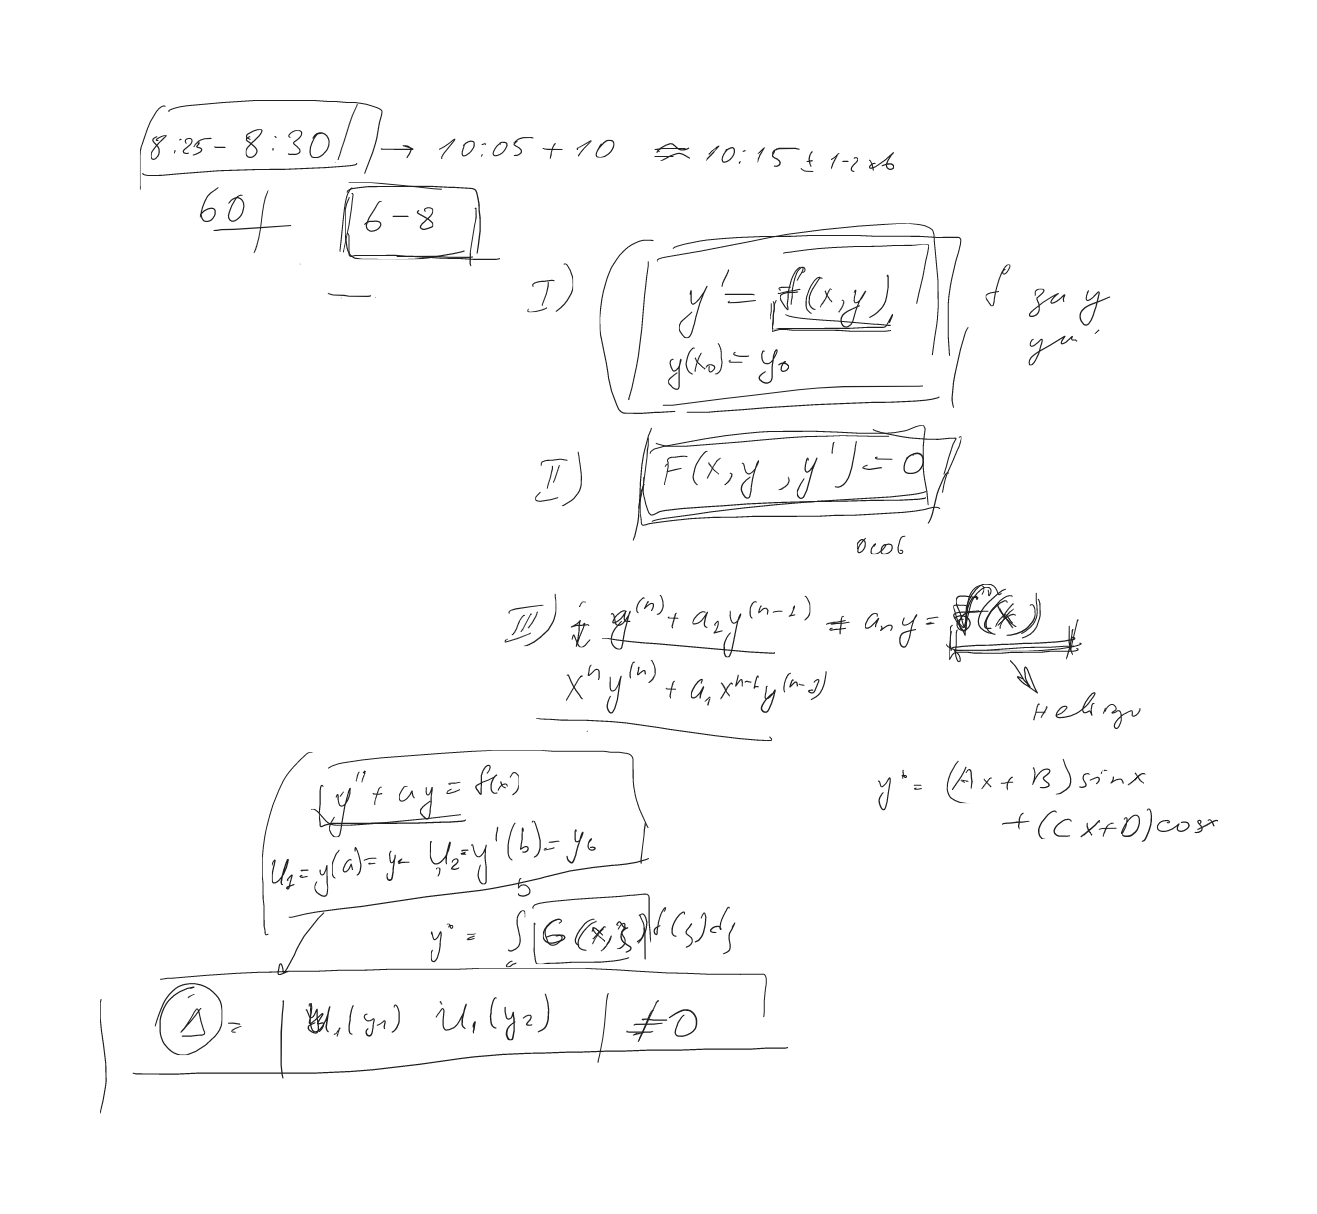 8:25 - 8:30 → 10:05 + 10 ≈ 10:15 ± 1-2 хв
60
6 - 8
I) y' = f(x,y) f за y
y(x₀) = y₀
II) F(x,y,y') = 0
особ
III) y⁽ⁿ⁾ + a₂y⁽ⁿ⁻¹⁾ + aₙy = f(x)
xⁿy⁽ⁿ⁾ + a₁xⁿ⁻¹y⁽ⁿ⁻¹⁾
y'' + ay = f(x)
y* = (Ax + B) sinx
+ (Cx+D) cosx
U₁ = y(a) = yₐ U₂ = y'(b) = y_b
y* = ∫ₐᵇ G(x,ξ) f(ξ)dξ
Δ = | U₁(y₁) U₁(y₂) | ≠ 0